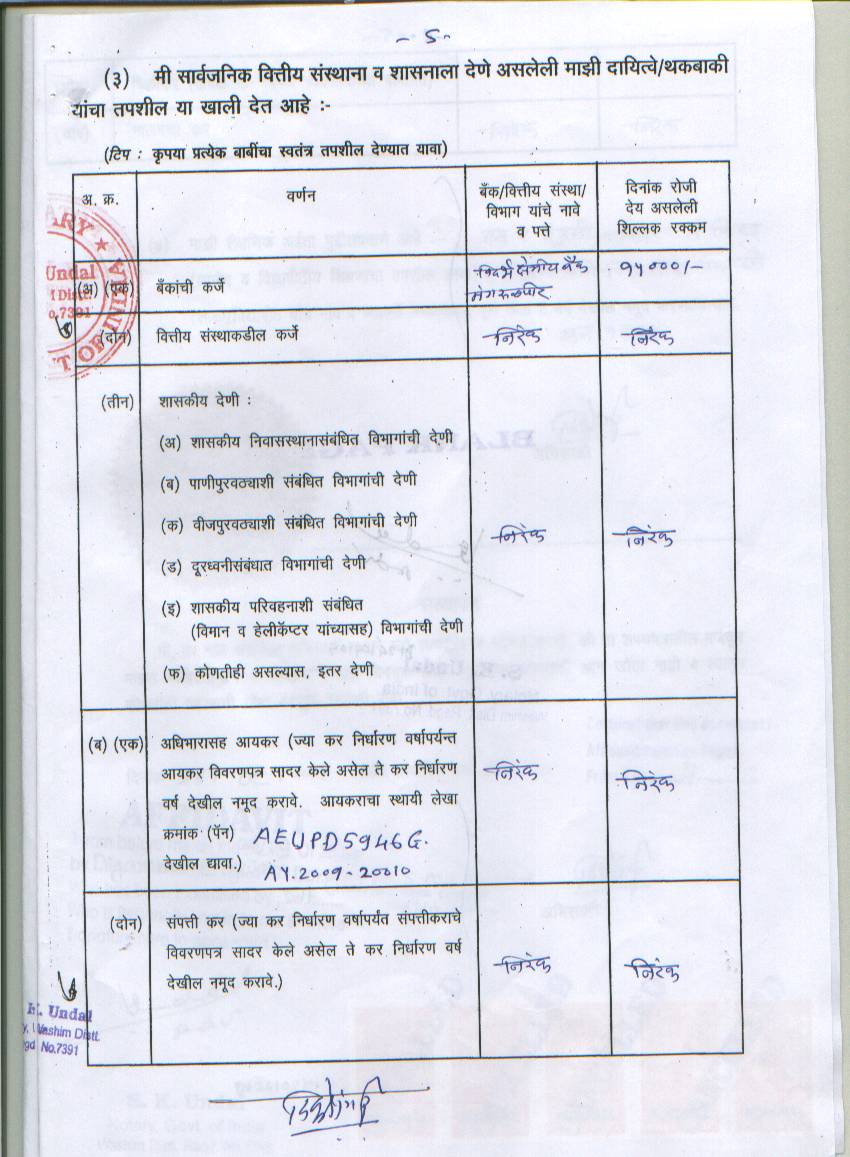 - 5 -
(३) मी सार्वजनिक वित्तीय संस्थाना व शासनाला देणे असलेली माझी दायित्वे/थकबाकी
यांचा तपशील या खाली देत आहे :-
(टिप : कृपया प्रत्येक बाबींचा स्वतंत्र तपशील देण्यात यावा)
अ. क्र.
वर्णन
बँक/वित्तीय संस्था/
विभाग यांचे नावे
व पत्ते
दिनांक रोजी
देय असलेली
शिल्लक रक्कम
(अ) (एक) बँकांची कर्जे
विदर्भ क्षेत्रीय बँक
मंगरुळपीर
१५०००/-
(दोन) वित्तीय संस्थाकडील कर्जे
निरंक
निरंक
(तीन) शासकीय देणी :
(अ) शासकीय निवासस्थानासंबंधित विभागांची देणी
(ब) पाणीपुरवठ्याशी संबंधित विभागांची देणी
(क) वीजपुरवठ्याशी संबंधित विभागांची देणी
निरंक
निरंक
(ड) दूरध्वनीसंबंधात विभागांची देणी
(इ) शासकीय परिवहनाशी संबंधित
(विमान व हेलीकॅप्टर यांच्यासह) विभागांची देणी
(फ) कोणतीही असल्यास, इतर देणी
(ब) (एक) अधिभारासह आयकर (ज्या कर निर्धारण वर्षापर्यन्त
आयकर विवरणपत्र सादर केले असेल ते कर निर्धारण
वर्ष देखील नमूद करावे. आयकराचा स्थायी लेखा
क्रमांक (पॅन) AEUPD5946G.
देखील द्यावा.) AY.2009-20010
निरंक
निरंक
(दोन) संपत्ती कर (ज्या कर निर्धारण वर्षापर्यंत संपत्तीकराचे
विवरणपत्र सादर केले असेल ते कर निर्धारण वर्ष
देखील नमूद करावे.)
निरंक
निरंक
ARY ★
Undal
Dist.
o.7391
T OF INDIA
K. Undal
y, Washim Distt.
gd No.7391